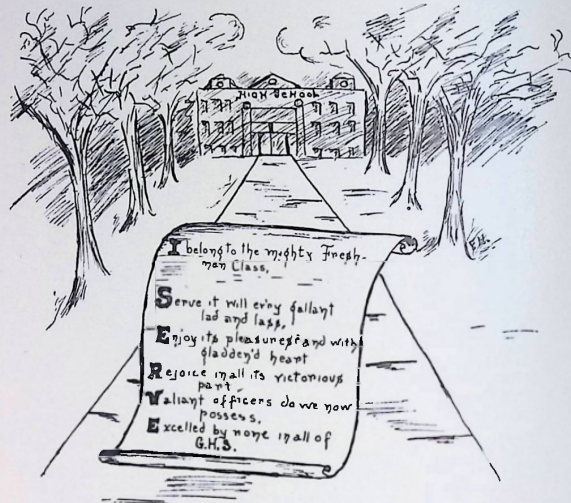 HIGH SCHOOL
I belong to the mighty Fresh-
man Class,
Serve it will ev'ry gallant
lad and lass,
Enjoy its pleasures and with
gladden'd heart
Rejoice in all its victorious
part.
Valiant officers do we now
possess,
Excelled by none in all of
G.H.S.